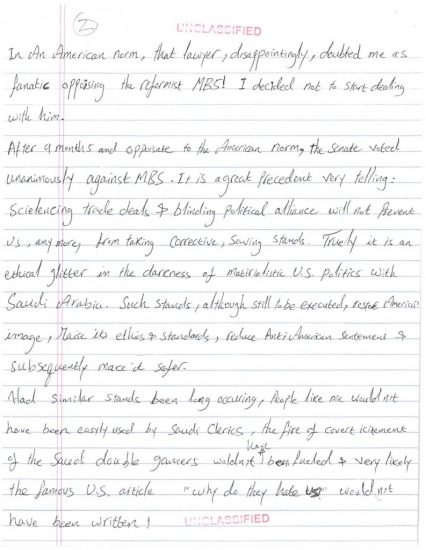 2
UNCLASSIFIED
In An American norm, that lawyer, disappointingly, doubted me as
fanatic oppising the reformist MBS! I decided not to start dealing
with him.
After 9 months and opposate to the American norm, the Senate voted
unanimously against MBS. It is a great precedent very telling:
Scielencing trade deals & blinding political alliance will not prevent
us, any more, from taking corrective, saving stands. Truely it is an
ethical glitter in the darcness of matirialistic U.S. politics with
Saudi Arabia. Such stands, although still to be executed, American
image, raise its ethics & standards, reduce Anti American sentement &
subsequently mace it safer.
Had similar stands been long occuring, People like me wouldn't
have been easily used by Saudi Clerics, the fire of covert icitement
of the Saudi double gamers woldn't have been fueled & very likely
the famous U.S. article "why do they hate us" wouldn't
have been written!
UNCLASSIFIED